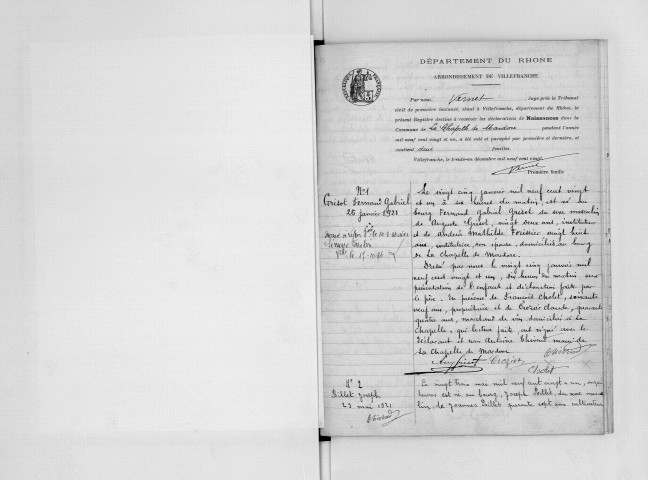 DÉPARTEMENT DU RHONE
ARRONDISSEMENT DE VILLEFRANCHE
Par nous, Vernet Juge près le Tribunal
civil de première instance, séant à Villefranche, département du Rhône, le
présent Registre destiné à recevoir les déclarations de Naissances dans la
Commune de La Chapelle de Mardore pendant l'année
mil neuf cent vingt et un, a été coté et paraphé par première et dernière, et
contient deux feuilles.
Villefranche, le trente-un décembre mil neuf cent vingt.
Première feuille
N° 1
Grisot Fernand Gabriel
25 janvier 1921
Le vingt cinq janvier mil neuf cent vingt
et un à six heures du matin, est né au
bourg Fernand Gabriel Grisot du sexe masculin
de Auguste Grisot, vingt deux ans, instituteur
et de Mathilde vingt huit
ans, institutrice, son épouse, domiciliés au bourg
de La Chapelle de Mardore.
Dressé par nous le vingt cinq janvier mil
neuf cent vingt et un, dix heures du matin sur
présentation de l'enfant et déclaration faite par
le père. En présence de François Cholet, soixante
neuf ans, propriétaire et de Crozier Claude, quarante
quatre ans, marchand de vin domiciliés à la
Chapelle, qui lecture faite, ont signé avec le
déclarant et nous Antoine Thivend maire de
La Chapelle de Mardore.
Crozier Thivend
Cholet
N° 2
Billet Joseph
23 mai 1921
Thivend
Le vingt trois mai mil neuf cent vingt et un,
heures est né au bourg, Joseph Billet, du sexe mascu
lin, de Joannes Billet quarante sept ans cultivateur